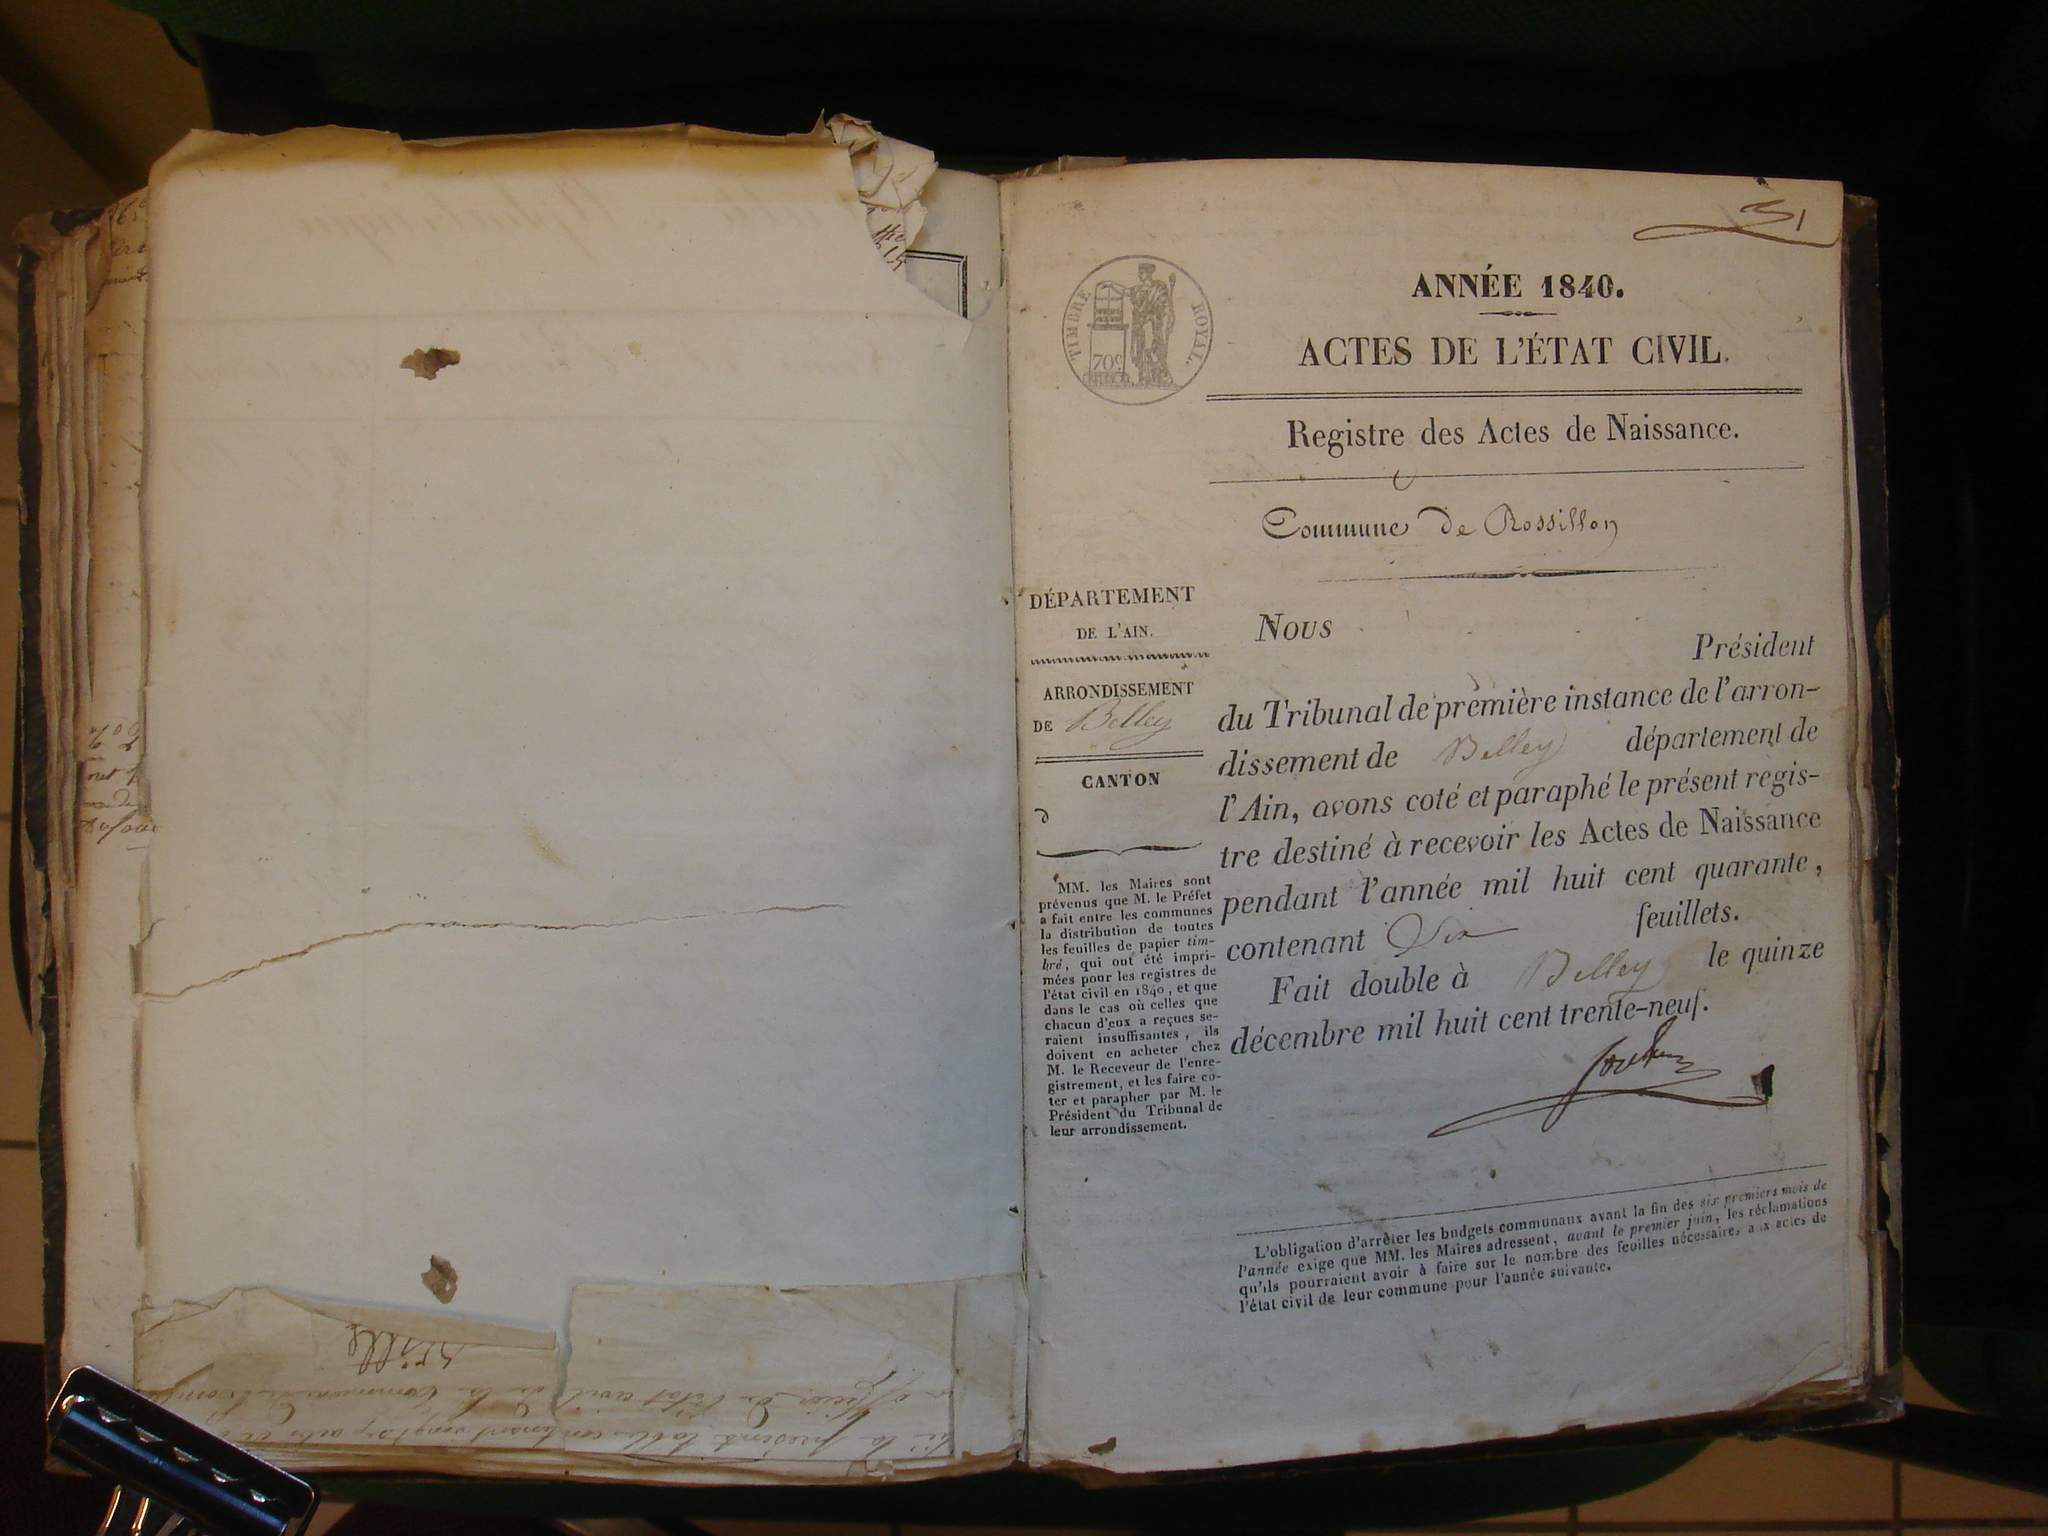 31
TIMBRE ROYAL.
70c
ANNÉE 1840.
ACTES DE L'ÉTAT CIVIL.
Registre des Actes de Naissance.
Commune de Rossillon
DÉPARTEMENT
DE L'AIN.
ARRONDISSEMENT
DE Belley
CANTON
d
MM. les Maires sont
prévenus que M. le Préfet
a fait entre les communes
la distribution de toutes
les feuilles de papier tim-
bré, qui ont été impri-
mées pour les registres de
l'état civil en 1840, et que
dans le cas où celles que
chacun d'eux a reçues se-
raient insuffisantes, ils
doivent en acheter chez
M. le Receveur de l'enre-
gistrement, et les faire co-
ter et parapher par M. le
Président du Tribunal de
leur arrondissement.
Nous
Président
du Tribunal de première instance de l'arron-
dissement de Belley département de
l'Ain, avons coté et paraphé le présent regis-
tre destiné à recevoir les Actes de Naissance
pendant l'année mil huit cent quarante,
contenant Dix feuillets.
Fait double à Belley le quinze
décembre mil huit cent trente-neuf.
L'obligation d'arrêter les budgets communaux avant la fin des six premiers mois de
l'année exige que MM. les Maires adressent, avant le premier juin, les réclamations
qu'ils pourraient avoir à faire sur le nombre des feuilles nécessaires aux actes de
l'état civil de leur commune pour l'année suivante.
la présente table contenant vingt six actes
officier de l'état civil de la Commune de